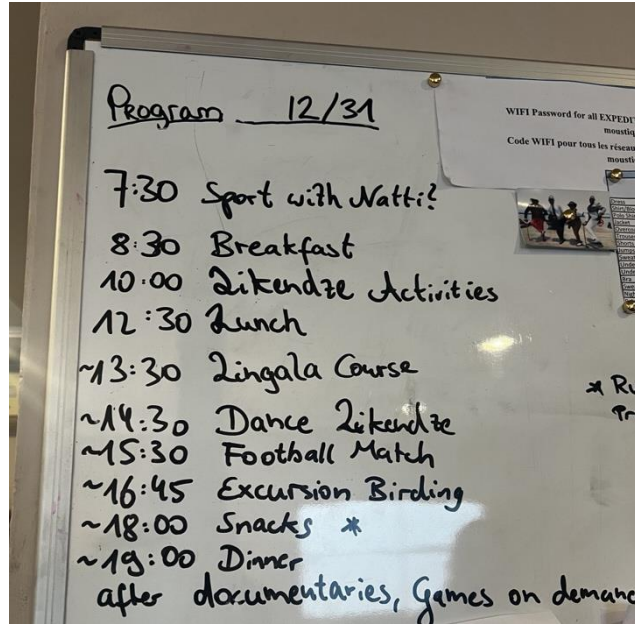 Program 12/31
7:30 Sport with Natti?
8:30 Breakfast
10:00 Likendze Activities
12:30 Lunch
~13:30 Lingala Course
~14:30 Dance Likendze
~15:30 Football Match
~16:45 Excursion Birding
~18:00 Snacks *
~19:00 Dinner
after documentaries, Games on deman
WIFI Password for all EXPEDI
moustiq
Code WIFI pour tous les réseau
mousti
* Ru